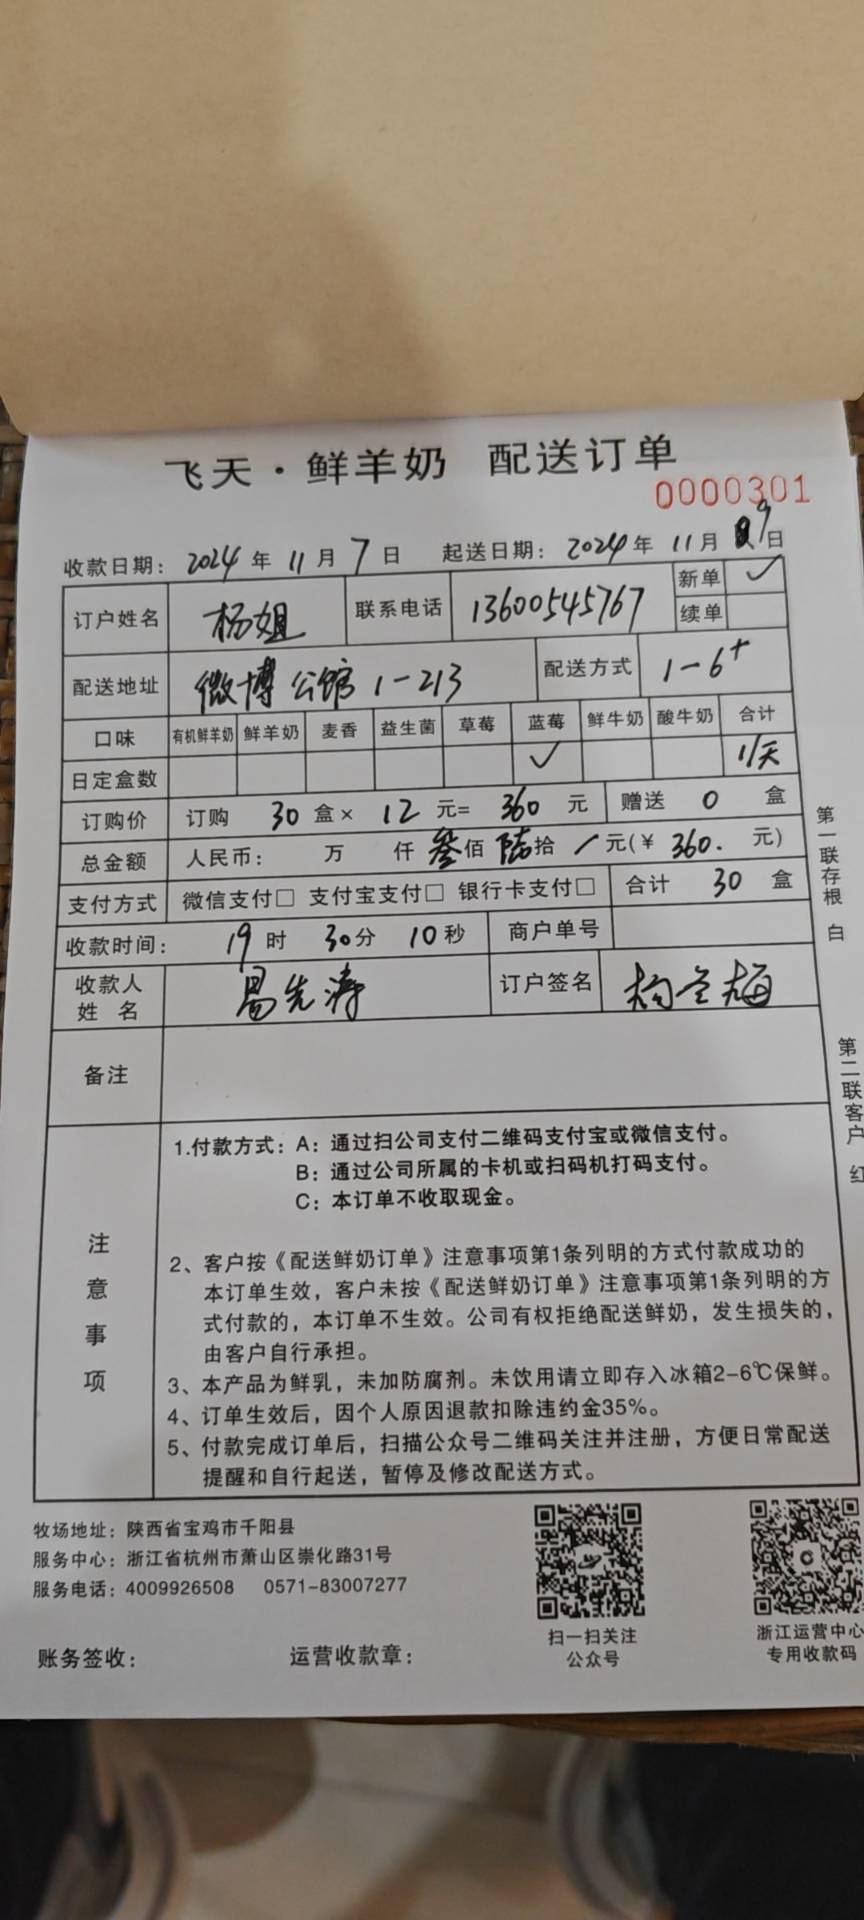 飞天·鲜羊奶 配送订单
0000301
收款日期： 2024 年 11 月 7 日 起送日期： 2024 年 11 月 9 日
订户姓名 杨姐 联系电话 13600545767 新单 ✓
续单
配送地址 微博公馆 1-213 配送方式 1-6+
口味 有机鲜羊奶 鲜羊奶 麦香 益生菌 草莓 蓝莓 鲜牛奶 酸牛奶 合计
日定盒数 ✓ 1/天
订购价 订购 30 盒× 12 元= 360 元 赠送 0 盒
总金额 人民币： 万 仟 叁佰 陆拾 / 元(¥ 360. 元)
支付方式 微信支付□ 支付宝支付□ 银行卡支付□ 合计 30 盒
收款时间： 19 时 30分 10秒 商户单号
收款人 姓名 易先涛 订户签名
备注
注意事项
1.付款方式：A：通过扫公司支付二维码支付宝或微信支付。
B：通过公司所属的卡机或扫码机打码支付。
C：本订单不收取现金。
2、客户按《配送鲜奶订单》注意事项第1条列明的方式付款成功的
本订单生效，客户未按《配送鲜奶订单》注意事项第1条列明的方
式付款的，本订单不生效。公司有权拒绝配送鲜奶，发生损失的，
由客户自行承担。
3、本产品为鲜乳，未加防腐剂。未饮用请立即存入冰箱2-6℃保鲜。
4、订单生效后，因个人原因退款扣除违约金35%。
5、付款完成订单后，扫描公众号二维码关注并注册，方便日常配送
提醒和自行起送，暂停及修改配送方式。
第一联存根 白
第二联客户 红
牧场地址：陕西省宝鸡市千阳县
服务中心：浙江省杭州市萧山区崇化路31号
服务电话：4009926508 0571-83007277
扫一扫关注
公众号
浙江运营中心
专用收款码
账务签收： 运营收款章：